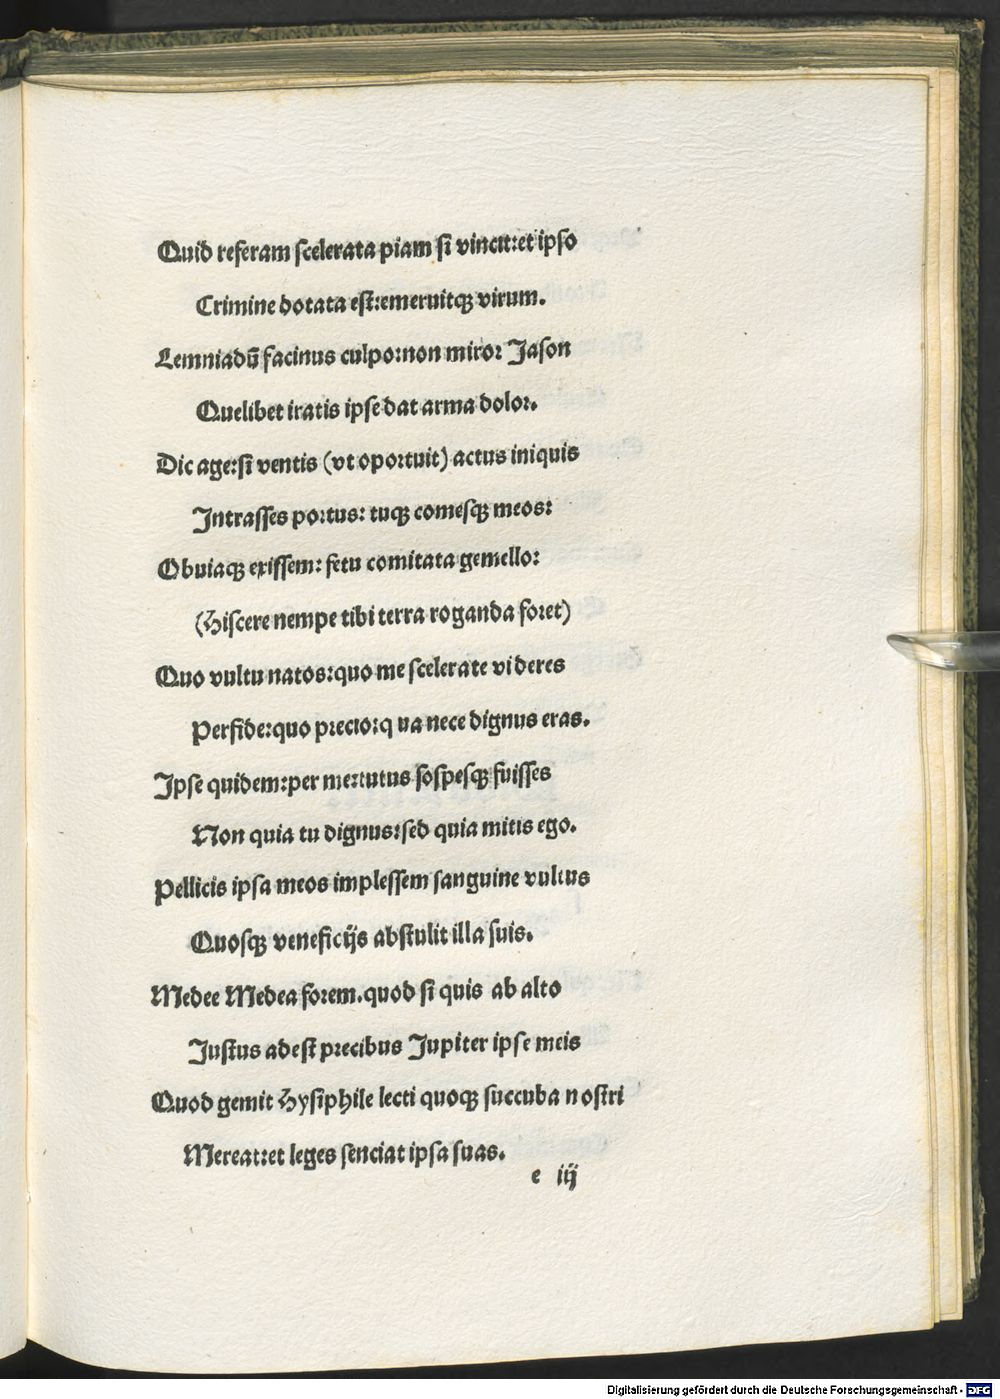 Quid referam scelerata piam si vincit:et ipso
Crimine dotata est:emeruitqꝫ virum.
Lemniadū facinus culpo:non miror Jason
Quelibet iratis ipse dat arma dolor.
Dic age:si ventis (vt oportuit) actus iniquis
Intrasses portus: tuqꝫ comesqꝫ meos:
Obuiaqꝫ exissem: fetu comitata gemello:
(Hiscere nempe tibi terra roganda foret)
Quo vultu natos:quo me scelerate videres
Perfide:quo precio:q ua nece dignus eras.
Ipse quidem:per me:tutus sospesqꝫ fuisses
Non quia tu dignus:sed quia mitis ego.
Pellicis ipsa meos implessem sanguine vultus
Quosqꝫ veneficijs abstulit illa suis.
Medee Medea forem.quod si quis ab alto
Justus adest precibus Jupiter ipse meis
Quod gemit Hysiphile lecti quoqꝫ succuba n ostri
Mereat:et leges senciat ipsa suas.
e iij
Digitalisierung gefördert durch die Deutsche Forschungsgemeinschaft - DFG